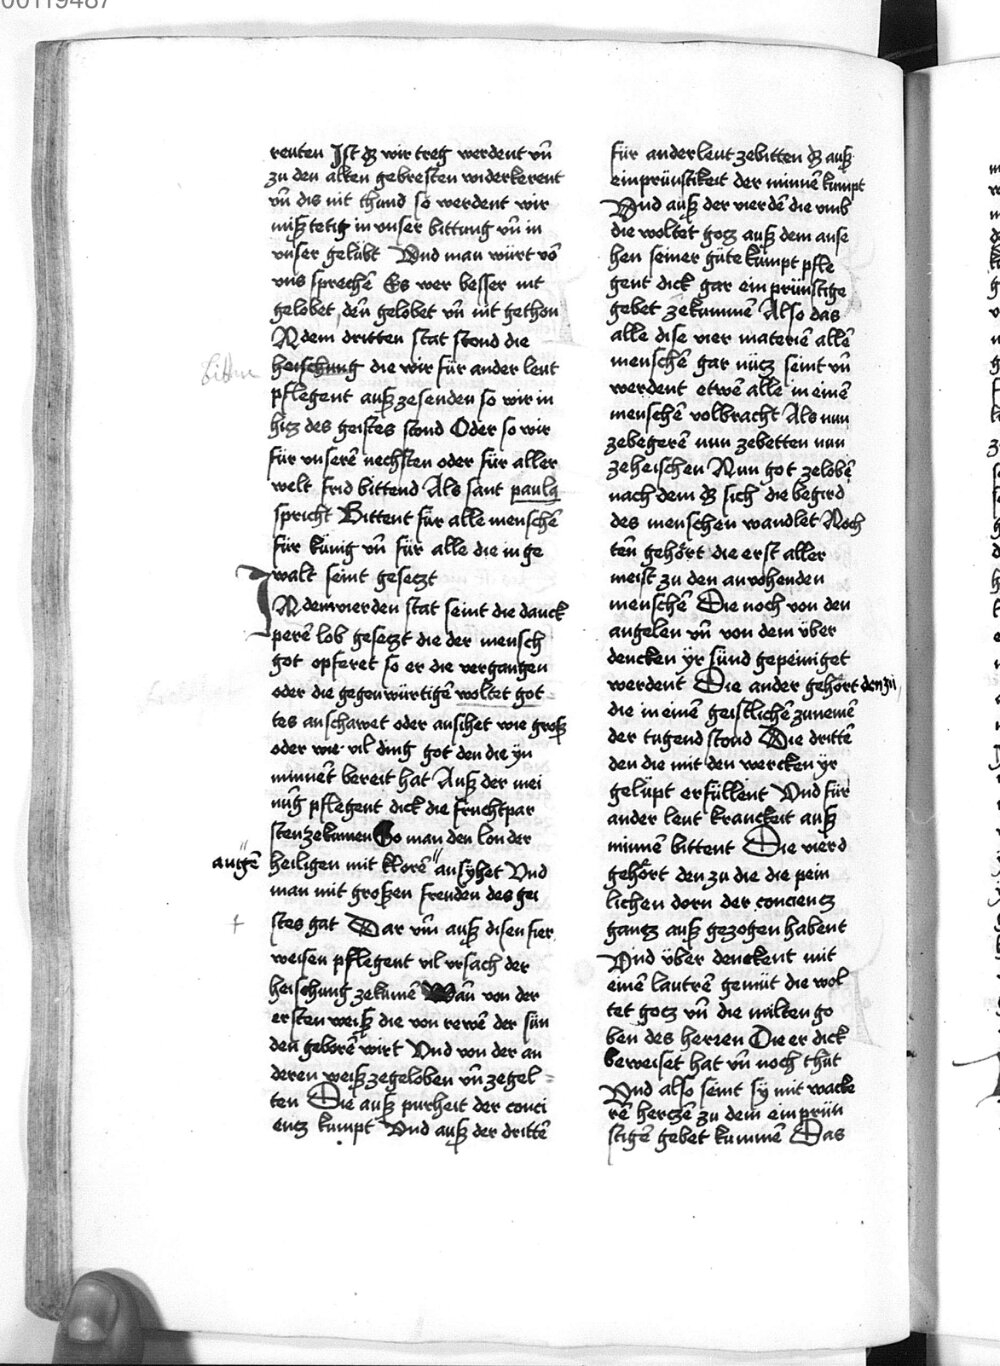 00119487
reuten Ist dz wir treg werdent vn̄
zu den alten gebresten widerkerent
vn̄ dis nit thund so werdent wir
mißtetig in vnser bittung vn̄ in
vnser gelübt Vnd man würt vō
vns sprechē Es wer besser nit
gelobet den̄ gelobet vn̄ nit gethon
N dem dritten stat stond die
bitten
heischung die wir für ander leut
pflegent auß zesenden so wir in
hitz des geistes stond Oder so wir
für vnserē nechsten oder für aller
welt frid bittend Als sant paulꝯ
spricht Bittent für alle menschē
für künig vn̄ für alle die in ge
walt seint gesetzt
IN dem vierden stat seint die danck
perē lob gesetzt die der mensch
got opferet so er die vergangen
oder die gegenwürtigē woltet got
tes anschawet oder ansihet wie groß
oder wie vil ding got den die yn
minnēt bereit hat Auß der mei
nūg pflegent dick die fruchtpar
sten zekumen So man den lon der
augē
heiligen mit klorē ansyhet Vnd
man mit großen freuden des gei
stes gat Dar vm̄ auß disen fier
weisen pflegent vil vrsach der
heischung zekumē Wan̄ von der
ersten weiß die von rewē der sün
den geborē wirt Vnd von der an
deren weiß zegeloben vn̄ zegel
ten Die auß purheit der conci
entz kumpt Vnd auß der drittē
für ander leut zebitten dz auß
einprünstikeit der minnē kumpt
Vnd auß der vierdē die vmb
die woltet gotz auß dem anse
hen seiner güte kumpt pfle
gent dick gar ein prünstige
gebet zekummē Also das
alle dise vier materiē allē
menschē gar nütz seint vn̄
werdent etwē alle in einē
menschē volbracht Als nun
zebegerē nun zebetten nun
zeheischen Nun got zelobē
nach dem dz sich die begird
des menschen wandlet Noch
ten̄ gehört die erst aller
meist zu den anvohenden
menschē Die noch von den
angelen vn̄ von dem über
dencken yr sünd gepeiniget
werdent Die ander gehört den zů
die in einē geistlichē zunemē
der tugend stond Die drittē
den die mit den wercken yr
gelüpt erfüllent Vnd für
ander leut kranckeit auß
minnē bittent Die vierd
gehört den zu die die pein
lichen dorn der concientz
gantz auß gezogen habent
Vnd über denckent mit
einē lautrē gemüt die wol
tet gotz vn̄ die milten go
ben des herren Die er dick
beweiset hat vn̄ noch thůt
Vnd also seint sy mit wacke
rē hertzē zu dem einprün
stigē gebet kummē Das